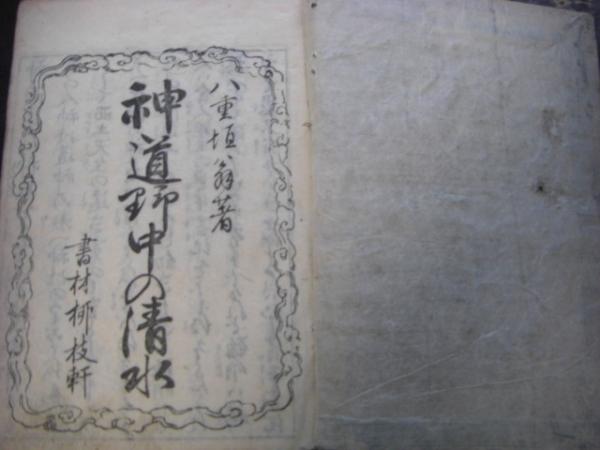 八重垣翁著
神道野中の清水
書林柳枝軒